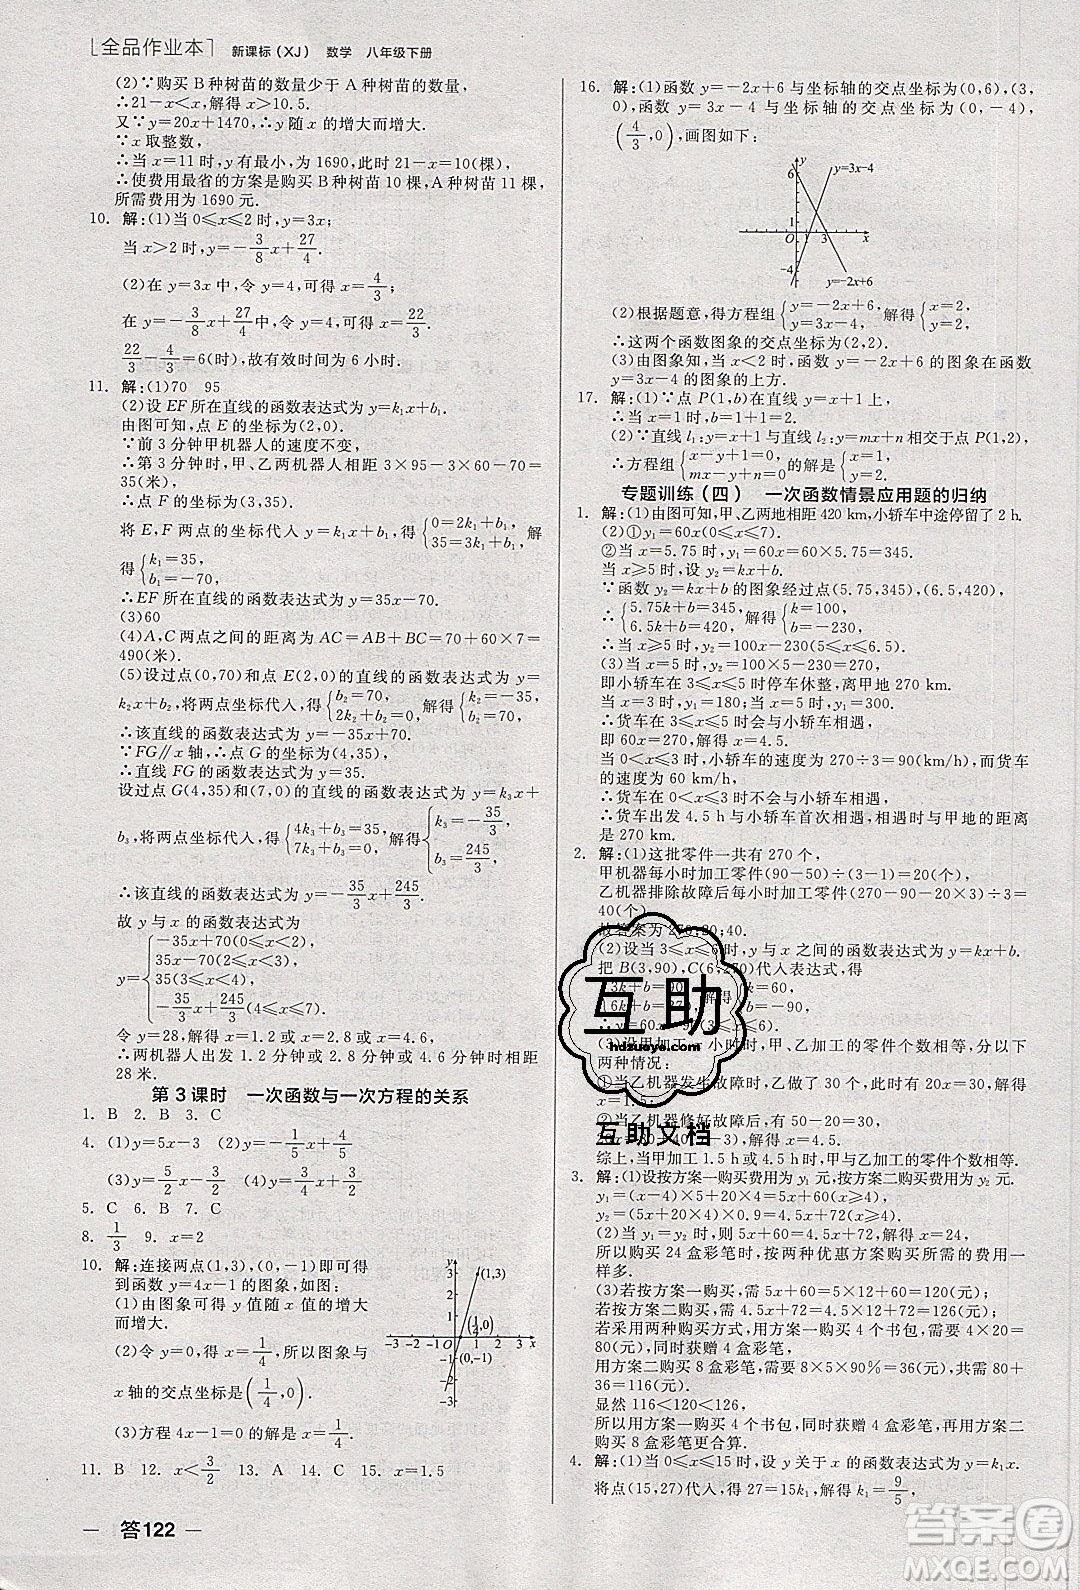 全品作业本 新课标(XJ) 数学 八年级下册
(2)∵购买 B 种树苗的数量少于 A 种树苗的数量,
∴21-x<x,解得 x>10.5.
又∵y=20x+1470,∴y 随 x 的增大而增大.
∵x 取整数,
∴当 x=11 时,y 有最小,为 1690,此时 21-x=10(棵),
∴使费用最省的方案是购买 B 种树苗 10 棵,A 种树苗 11 棵,
所需费用为 1690 元.
10. 解:(1)当 0≤x≤2 时,y=3x;
当 x>2 时,y=-3/8x+27/4.
(2)在 y=3x 中,令 y=4,可得 x=4/3;
在 y=-3/8x+27/4 中,令 y=4,可得 x=22/3.
22/3-4/3=6(时),故有效时间为 6 小时.
11. 解:(1)70 95
(2)设 EF 所在直线的函数表达式为 y=k₁x+b₁.
由图可知,点 E 的坐标为(2,0).
∵前 3 分钟甲机器人的速度不变,
∴第 3 分钟时,甲、乙两机器人相距 3×95-3×60-70=
35(米),
∴点 F 的坐标为(3,35).
将 E,F 两点的坐标代入 y=k₁x+b₁,得{0=2k₁+b₁, 35=3k₁+b₁,解
得{k₁=35, b₁=-70,
∴EF 所在直线的函数表达式为 y=35x-70.
(3)60
(4)A,C 两点之间的距离为 AC=AB+BC=70+60×7=
490(米).
(5)设过点(0,70)和点 E(2,0)的直线的函数表达式为 y=
k₂x+b₂,将两点的坐标代入,得{b₂=70, 2k₂+b₂=0,解得{k₂=-35, b₂=70,
∴该直线的函数表达式为 y=-35x+70.
∵FG∥x 轴,∴点 G 的坐标为(4,35),
∴直线 FG 的函数表达式为 y=35.
设过点 G(4,35)和(7,0)的直线的函数表达式为 y=k₃x+
b₃,将两点坐标代入,得{4k₃+b₃=35, 7k₃+b₃=0,解得{k₃=-35/3, b₃=245/3,
∴该直线的函数表达式为 y=-35/3x+245/3.
故 y 与 x 的函数表达式为
y={-35x+70(0≤x<2), 35x-70(2≤x<3), 35(3≤x<4), -35/3x+245/3(4≤x≤7).
令 y=28,解得 x=1.2 或 x=2.8 或 x=4.6,
∴两机器人出发 1.2 分钟或 2.8 分钟或 4.6 分钟时相距
28 米.
第 3 课时 一次函数与一次方程的关系
1. B 2. B 3. C
4. (1)y=5x-3 (2)y=-1/2x+1/2
(3)y=-1/2x (4)y=-1/2x+1/2
5. C 6. B 7. C
8. 1/3 9. x=2
10. 解:连接两点(1,3),(0,-1)即可得
到函数 y=4x-1 的图象,如图:
(1)由图象可得 y 值随 x 值的增大
而增大.
(2)令 y=0,得 x=1/4,∴该图象与
x 轴的交点坐标是(1/4,0).
(3)方程 4x-1=0 的解是 x=1/4.
11. B 12. x<3/2 13. A 14. C 15. x=1.5
答122
16. 解:(1)函数 y=-2x+6 与坐标轴的交点为(0,6),(3,
0),函数 y=3x-4 与坐标轴的交点坐标为(0,-4),
(4/3,0),画图如下:
y=3x-4
y=-2x+6
(2)根据题意,得方程组{y=-2x+6, y=3x-4,解得{x=2, y=2,
∴这两个函数图象的交点坐标为(2,2).
(3)由图象知,当 x<2 时,函数 y=-2x+6 的图象在函数
y=3x-4 的图象的上方.
17. 解:(1)∵点 P(1,b)在直线 y=x+1 上,
∴当 x=1 时,b=1+1=2.
(2)∵直线 l₁:y=x+1 与直线 l₂:y=mx+n 相交于点 P(1,2),
∴方程组{x-y+1=0, mx-y+n=0的解是{x=1, y=2.
专题训练(四) 一次函数情景应用题的归纳
1. 解:(1)由图可知,甲、乙两地相距 420 km,小轿车中途停留了 2 h.
(2)①y₁=60x(0≤x≤7).
②当 x=5.75 时,y₁=60x=60×5.75=345.
当 x≥5 时,设 y₂=kx+b.
∵函数 y₂=kx+b 的图象经过点(5.75,345),(6.5,420),
∴{5.75k+b=345, 6.5k+b=420,解得{k=100, b=-230,
∴当 x≥5 时,y₂=100x-230(5≤x≤6.5).
(3)当 x=5 时,y₂=100×5-230=270,
即小轿车在 3≤x≤5 时停车休整,离甲地 270 km.
当 x=3 时,y₁=180;当 x=5 时,y₁=300.
∴货车在 3≤x≤5 时会与小轿车相遇,
即 60x=270,解得 x=4.5.
当 0<x≤3 时,小轿车的速度为 270÷3=90(km/h),而货车
的速度为 60 km/h,
∴货车在 0<x≤3 时不会与小轿车相遇,
∴货车出发 4.5 h 与小轿车首次相遇,相遇时与甲地的距离
是 270 km.
2. 解:(1)这批零件一共有 270 个,
甲机器每小时加工零件(90-50)÷(3-1)=20(个),
乙机器排除故障后每小时加工零件(270-90-20×3)÷3=
40(个).
故答案为 270;20;40.
(2)设当 3≤x≤6 时,y 与 x 之间的函数表达式为 y=kx+b.
把 B(3,90),C(6,270)代入表达式,得
{3k+b=90, 6k+b=270,解得{k=60, b=-90,
∴y=60x-90(3≤x≤6).
(3)设甲加工 x 小时时,甲、乙加工的零件个数相等,分以下
两种情况:
①当乙机器发生故障时,乙做了 30 个,20x=30,解得 x=1.5;
②当乙机器修好故障后,
30+40(x-3),解得 x=4.5.
综上,当甲加工 1.5 h 或 4.5 h 时,甲与乙加工的零件个数相等.
3. 解:(1)设按方案一购买费用为 y₁ 元,按方案二购买费用为 y₂ 元.
y₁=(x-4)×5+20×4=5x+60,
y₂=(5x+20×4)×0.9=4.5x+72.
(2)当 y₁=y₂ 时,5x+60=4.5x+72,解得 x=24,
所以购买 24 盒彩笔时,按两种优惠方案购买所需的费用一
样多.
(3)若按方案一购买,需 5x+60=5×12+60=120(元),
若按方案二购买,需 4.5x+72=4.5×12+72=126(元),
若采用两种购买方式,用方案一购买 4 个书包,需 4×20=
80(元),同时获赠 4 盒彩笔,
用方案二购买 8 盒彩笔,需要 8×5×90%=36(元),共需要
80+36=116(元).
显然 116<120<126,
所以用方案一购买 4 个书包,同时获赠 4 盒彩笔,再用方案二
购买 8 盒彩笔更合算.
4. 解:(1)当 0≤x≤15 时,设 y 关于 x 的函数表达式为 y=k₁x.
将点(15,27)代入,得 27=15k₁,解得 k₁=9/5,
互助
hdzuoye.com
互助文档
答案圈
MXQE.COM